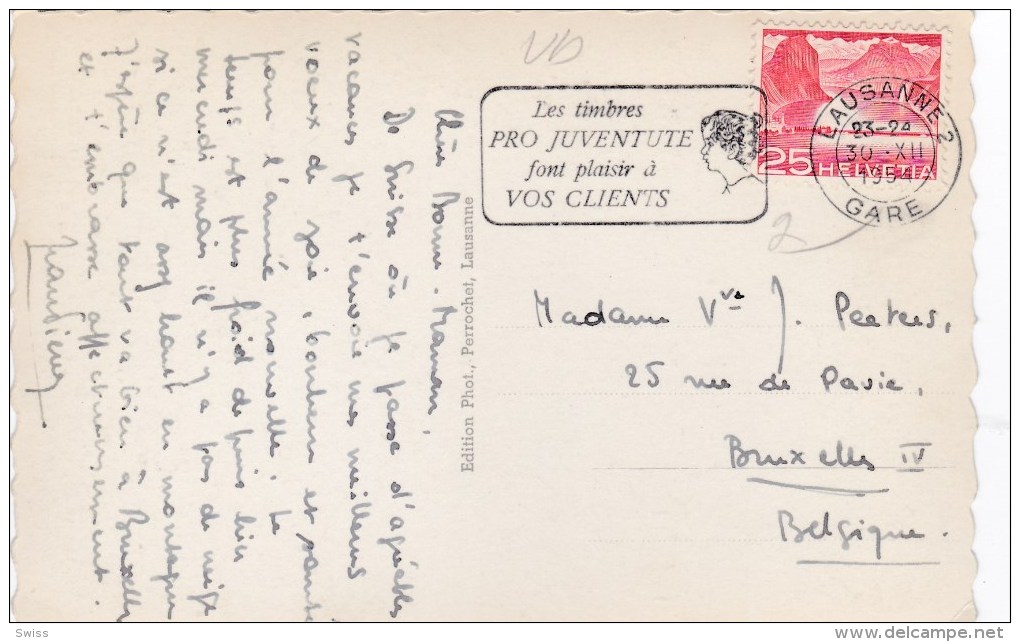 Chère Bonne-Maman,
De Suisse où je passe d'agréables
vacances je t'envoie mes meilleurs
voeux de joie, bonheur et santé
pour l'année nouvelle. Le
temps est plus froid depuis hier
mercredi mais il n'y a pas de neige
si ce n'est assez haut en montagne
J'espère que tout va bien à Bruxelles
et t'embrasse affectueusement.
Edition Phot., Perrochet, Lausanne
Les timbres
PRO JUVENTUTE
font plaisir à
VOS CLIENTS
25 HELVETIA
LAUSANNE 2
23-24
30.-XII
1954
GARE
2
Madame Vve J. Peeters,
25 rue de Pavie,
Bruxelles IV
Belgique.
Swiss
www.delcampe.net